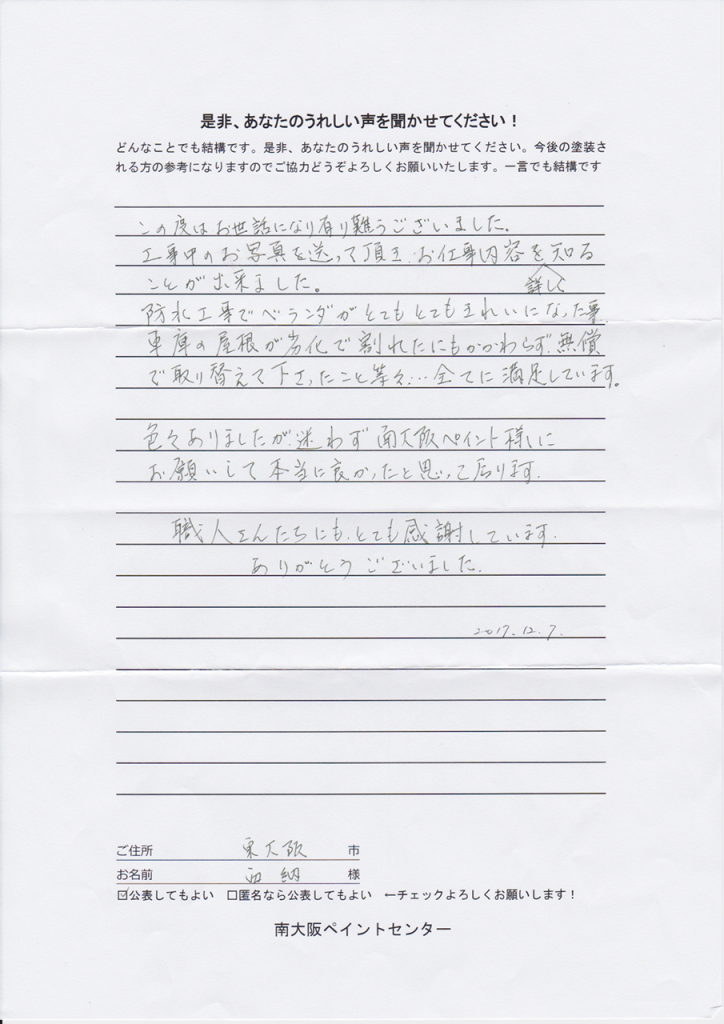 是非、あなたのうれしい声を聞かせてください！
どんなことでも結構です。是非、あなたのうれしい声を聞かせてください。今後の塗装さ
れる方の参考になりますのでご協力どうぞよろしくお願いいたします。一言でも結構です
この度はお世話になり有り難うございました。
工事中のお写真を送って頂き、お仕事内容を詳しく知る
ことが出来ました。
防水工事でベランダがとてもとてもきれいになった事、
車庫の屋根が劣化で割れたにもかかわらず、無償
で取り替えて下さったこと等々…全てに満足しています。
色々ありましたが、迷わず南大阪ペイント様に
お願いして本当に良かったと思って居ります。
職人さんたちにも、とても感謝しています。
ありがとうございました。
2017.12.7.
ご住所 東大阪 市
お名前 納 様
☑公表してもよい □匿名なら公表してもよい ←チェックよろしくお願いします！
南大阪ペイントセンター